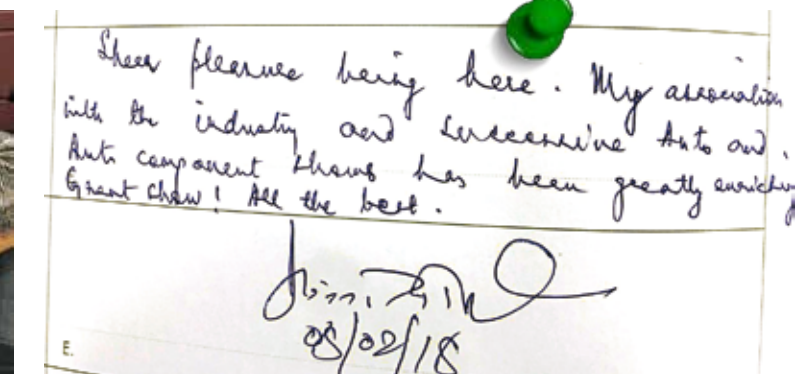 Sheer pleasure being here. My association
with the industry and successive Auto and
Auto component shows has been greatly enriching
Great Show! All the best.
08/02/18
E.